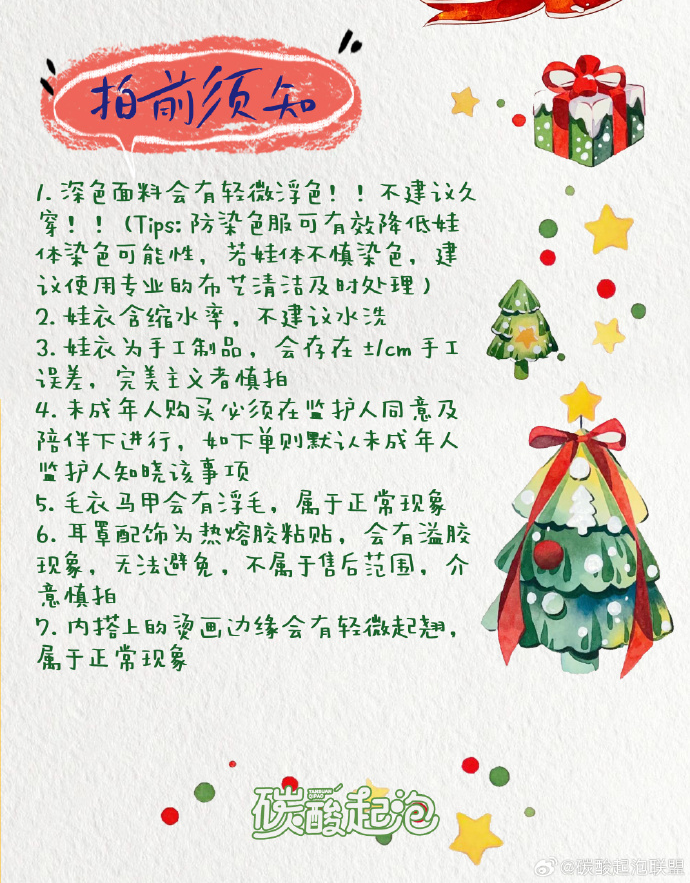 拍前须知
1. 深色面料会有轻微浮色！！不建议久
穿！！（Tips: 防染色服可有效降低娃
体染色可能性，若娃体不慎染色，建
议使用专业的布艺清洁及时处理）
2. 娃衣含缩水率，不建议水洗
3. 娃衣为手工制品，会存在±1cm手工
误差，完美主义者慎拍
4. 未成年人购买必须在监护人同意及
陪伴下进行，如下单则默认未成年人
监护人知晓该事项
5. 毛衣马甲会有浮毛，属于正常现象
6. 耳罩配饰为热熔胶粘贴，会有溢胶
现象，无法避免，不属于售后范围，介
意慎拍
7. 内搭上的烫画边缘会有轻微起翘，
属于正常现象
TANSUAN
QIPAO
碳酸起泡
@碳酸起泡联盟